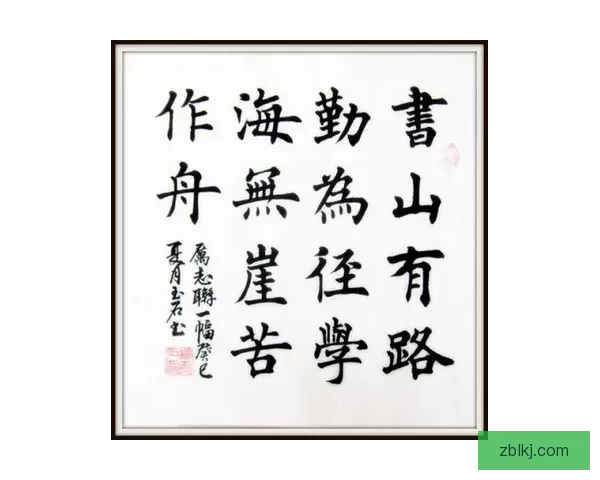 書山有路
勤為径學
海無崖苦
作舟
厲志聯一幅癸巳
夏月玉石书
zblkj.com